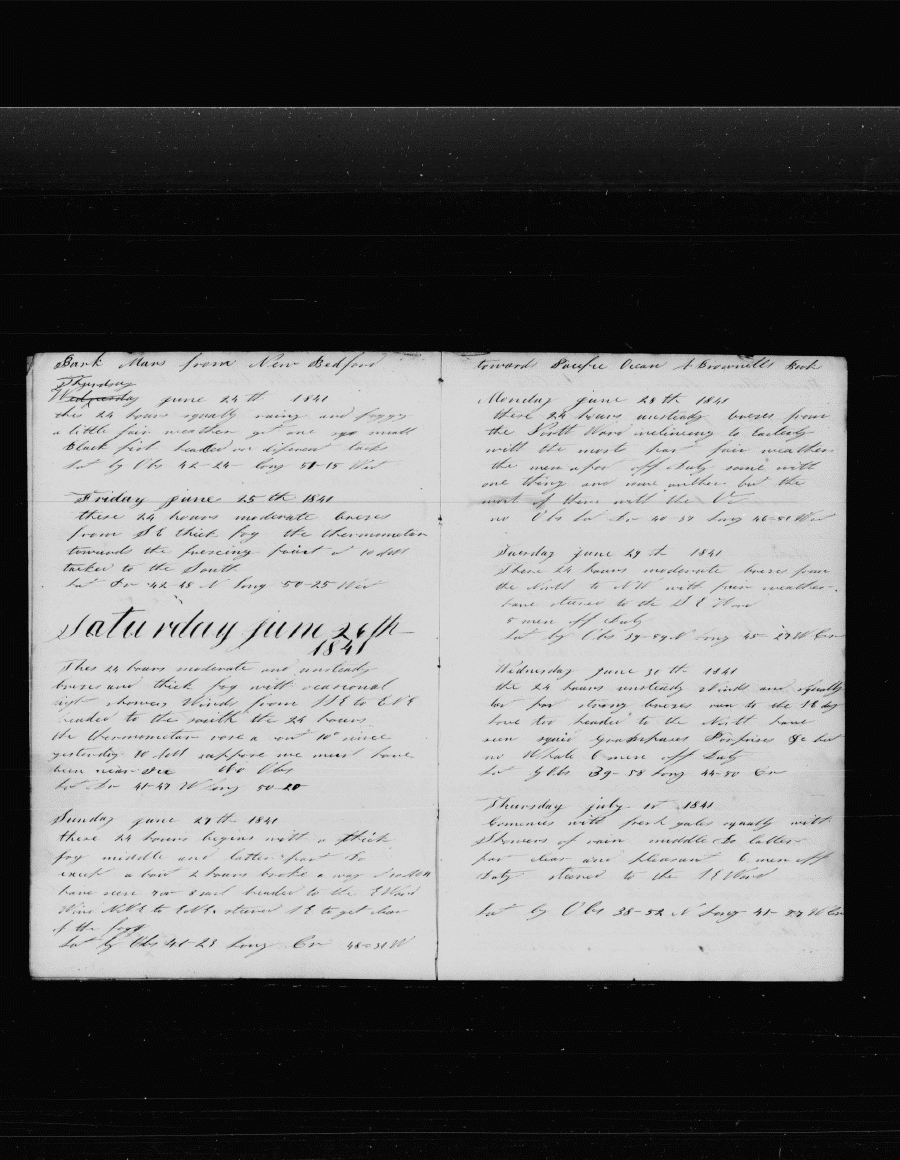 Bark Mars from New Bedford
Thursday
Wednesday june 24 th 1841
this 24 hours squally rainy and foggy
a little fair weather got one small
Black fish headed on diferent tacks
Lat by Obs 42-24 Long 51-15 West
Friday june 25 th 1841
these 24 hours moderate breses
from S E thick fog the thermometer
towards the freescing point
tacked to the South
Lat Dr 42-48 N Long 50-25 West
Saturday june 26th
1841
Thes 24 hours moderate and unsteady
breses and thick fog with ocasional
showers Winds from to E N E
headed to the south the 24 hours
the thermometer rose a out 10° since
yesterday suppose we must have
been near Ice No Obs
Lat Dr 41-47 W Long 50-20
Sunday june 27 th 1841
these 24 hours begins with a thick
fog middle and latter part Do
except a bout 2 hours broke a way
have seen sail headed to the E Ward
Wind N N E to E N E steered S E to get clear
of the fogg
Lat by Obs 41-23 Long Cr 48-31 W
towards Pacific Ocean A Brownells Book
Monday june 28 th 1841
these 24 hours unsteady breses from
the North Ward inclineing to Easterly
with the most part fair weather
the men a for off duty some with
one thing and some nother but the
most of them with the
no Obs Lat Dr 40-37 Long 46-51 West
Tuesday june 29 th 1841
These 24 hours moderate breses from
the North to N W with fair weather
have steered to the S E Ward
5 men off Duty
Lat by Obs 39-59 N Long 45-27 W Cr
Wednesday june 30 th 1841
the 24 hours unsteady Winds and squally
strong breses
hove too headed to the North have
seen squid Porpoises &c but
no Whale 6 men off Duty
Lat Obs 39-58 Long 44-50 Cr
Thursday july 1st 1841
Comences with fresh gales squally with
Showers of rain middle Do latter
par clear and pleasant 6 men off
Duty steered to the S E Ward
Lat by Obs 38-52 N Long 41-27 W Cr